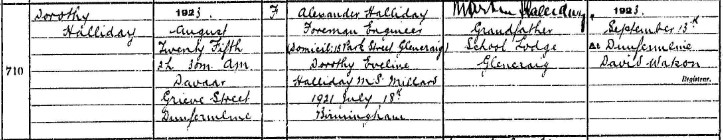 710
Dorothy
Halliday
1923.
August
Twenty Fifth
2h 30m A.M.
Davaar
Grieve Street
Dunfermline
F
Alexander Halliday
Foreman Engineer
(Domicile: 15 Park Street Glencraig)
Dorothy Eveline
Halliday M.S. Millard
1921 July 18th
Birmingham
Martin Halliday
Grandfather
School Lodge
Glencraig
1923.
September 13th
At Dunfermline
David Watson
Registrar.